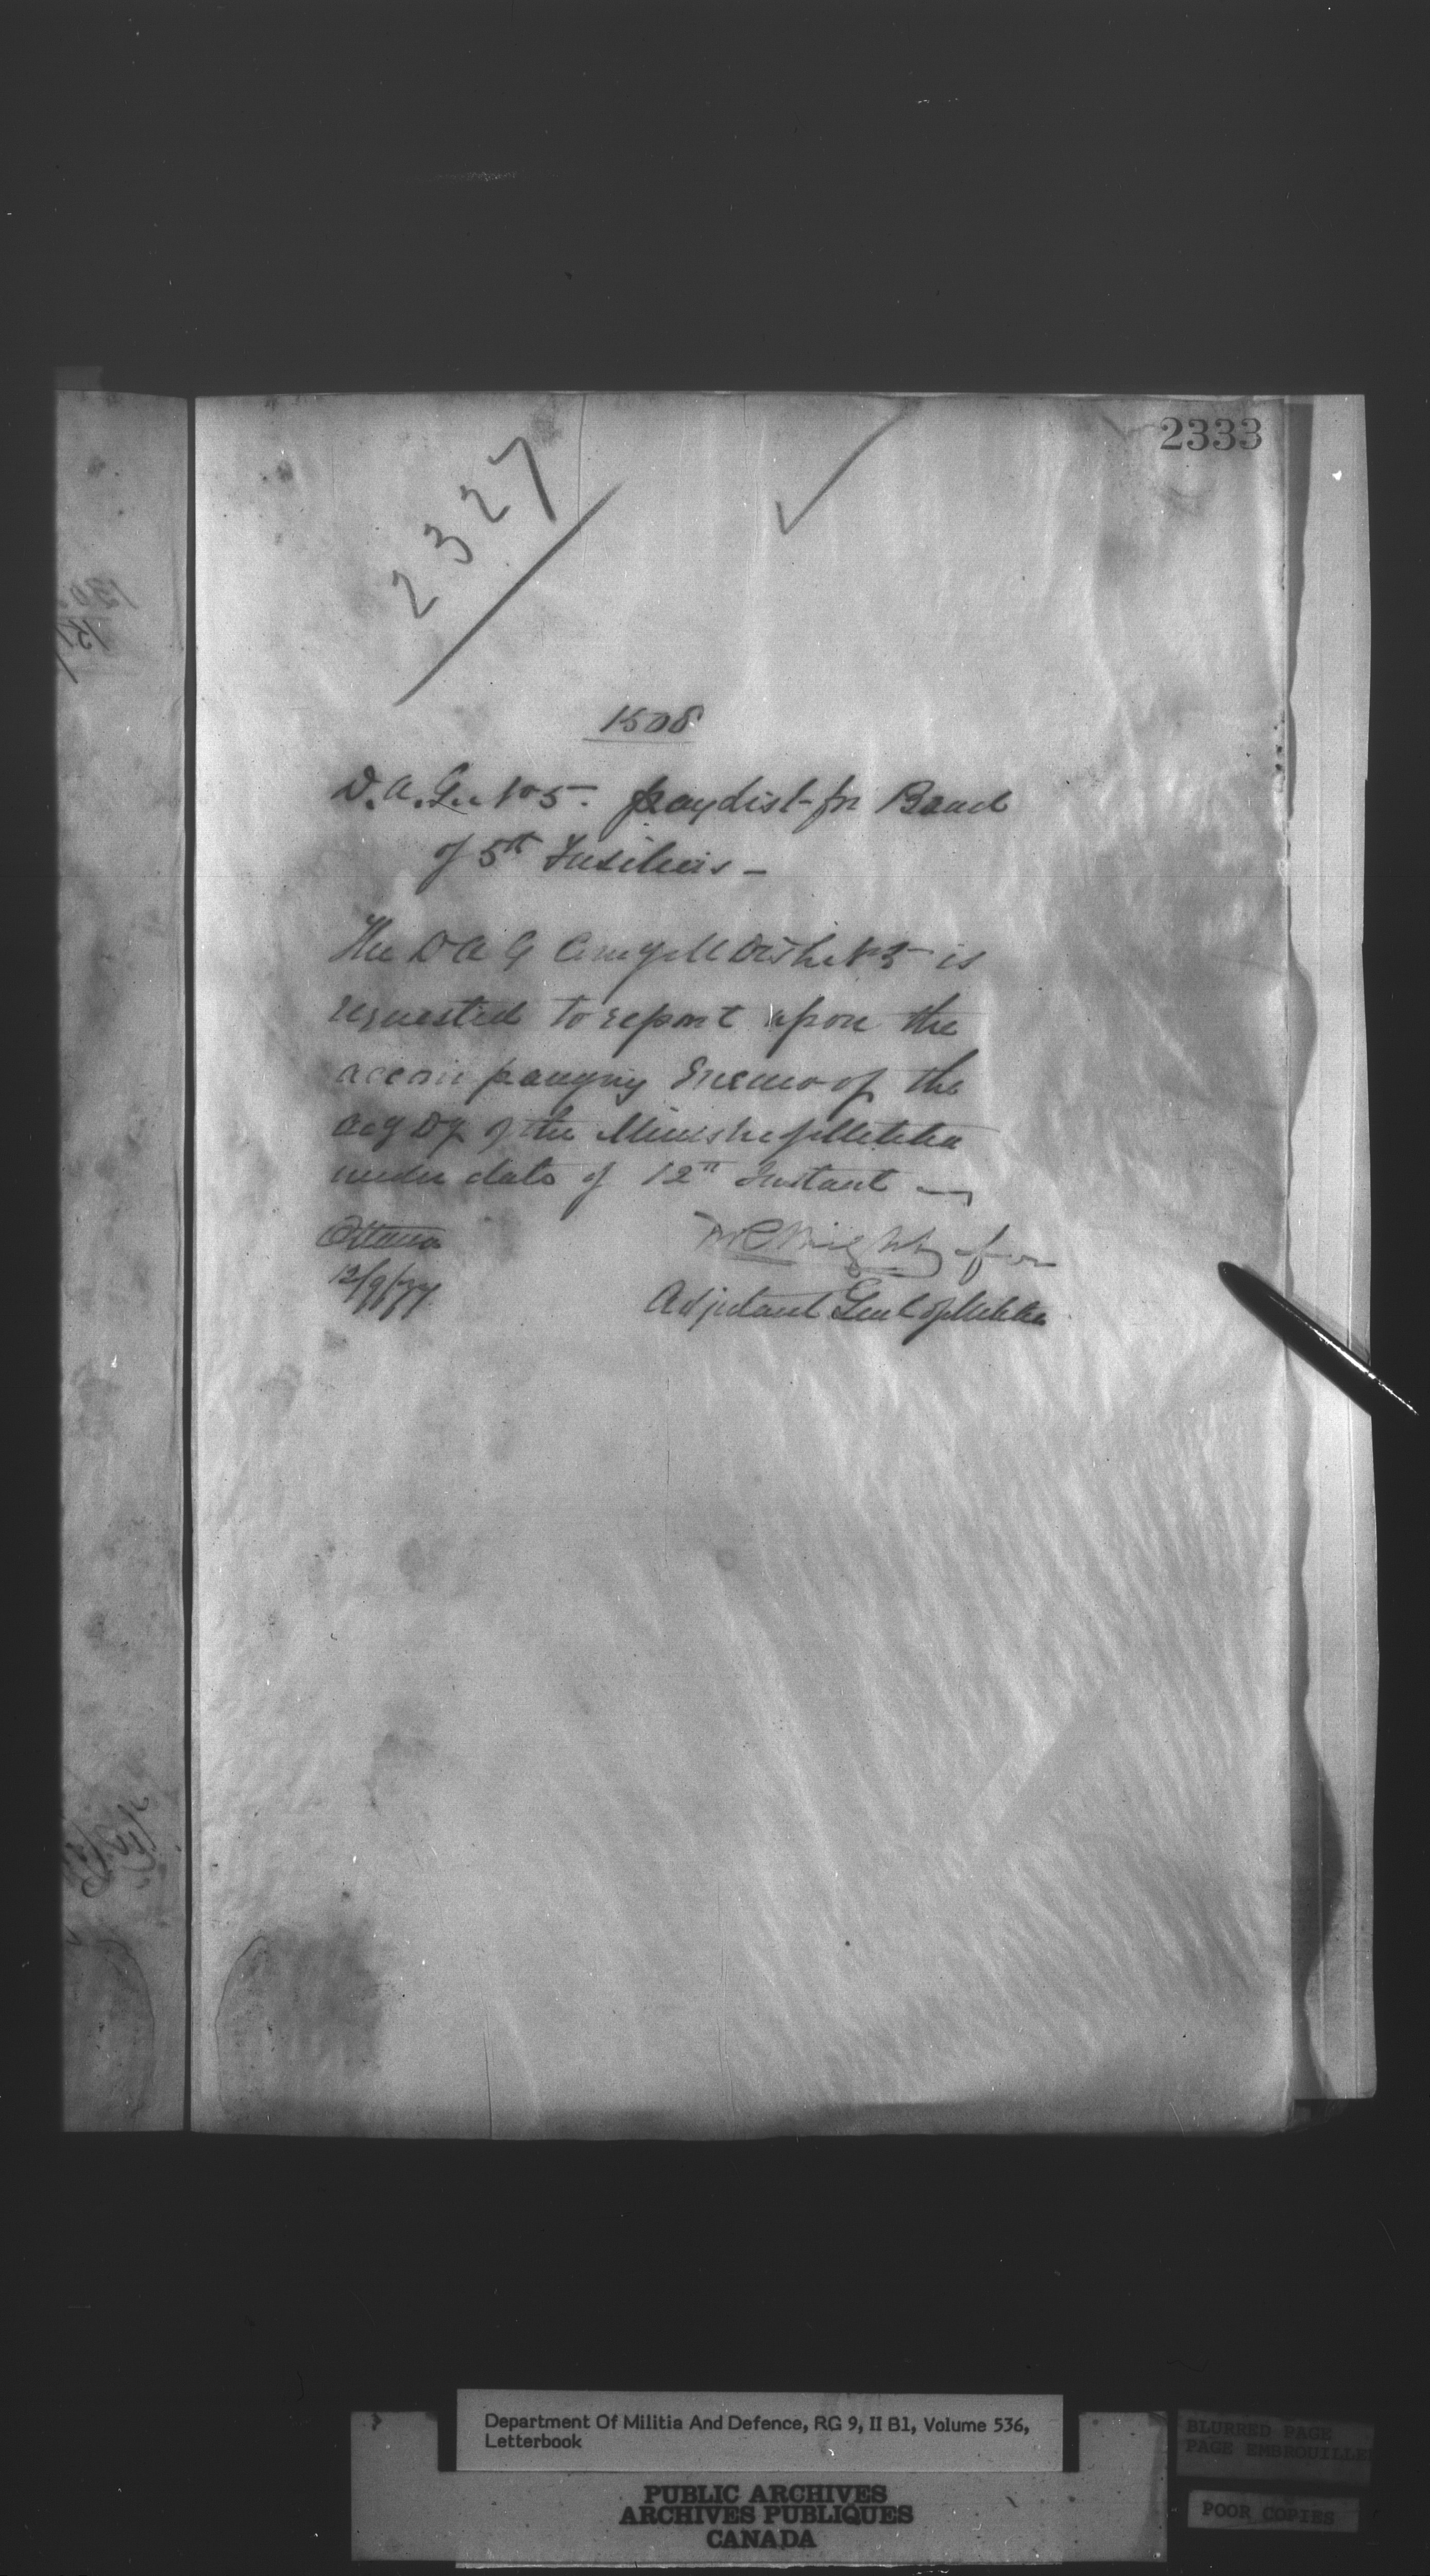 2333
2327
1508
D.A.G. No 5. paylist for Band
of 5th Fusiliers -
The DAG Comg M Dist No 5 is
requested to report upon the
accompanying Memo of the
actg Dy of the Minister of Militia
under date of 12th Instant
Ottawa
12/9/77
for
Adjutant Genl of Militia
Department Of Militia And Defence, RG 9, II B1, Volume 536,
Letterbook
PUBLIC ARCHIVES
ARCHIVES PUBLIQUES
CANADA
BLURRED PAGE
PAGE EMBROUILLE
POOR COPIES